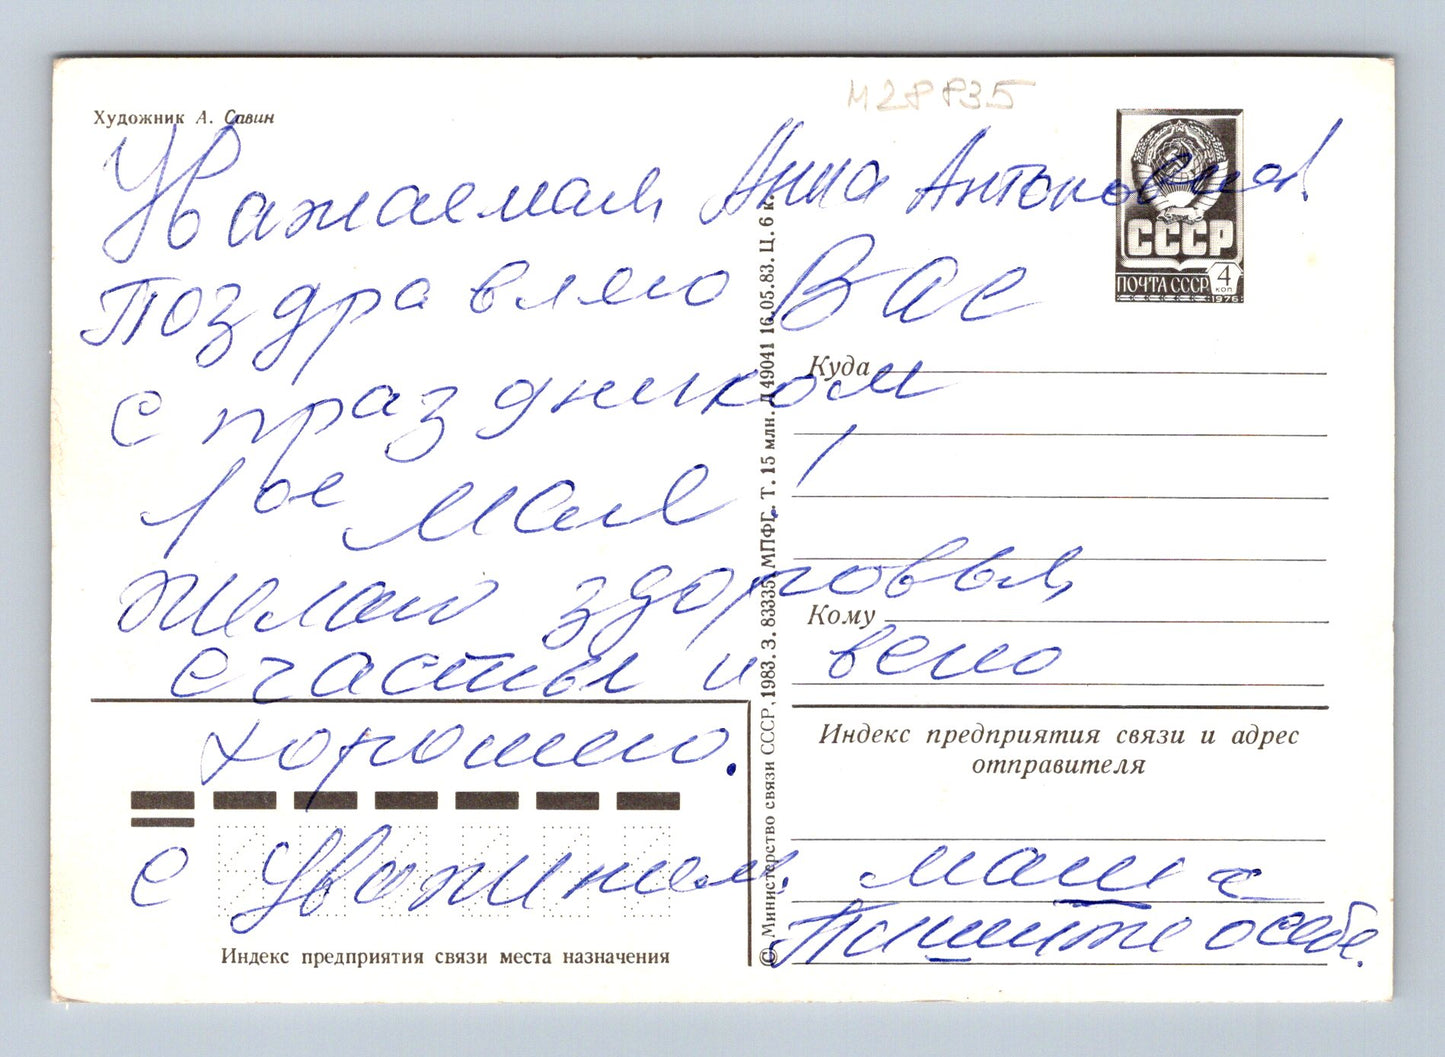 Художник А. Савин
М28835
Уважаемая Анна Антоновна!
Поздравляю Вас
с праздником
1ое мая!
Желаю здоровья,
счастья и всего
хорошего.
С уважинием. Маша
Пишите о себе.
СССР
ПОЧТА СССР 4 коп
1976
Куда
Кому
Индекс предприятия связи и адрес
отправителя
Индекс предприятия связи места назначения
© Министерство связи СССР, 1983. З. 83335. МПФГ. Т. 15 млн. Д 49041 16.05.83. Ц. 6 к.